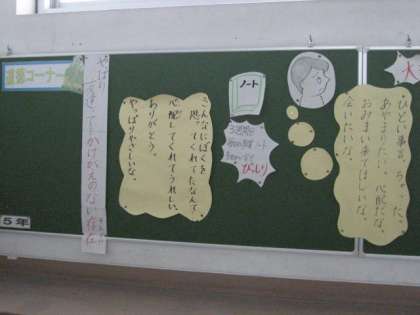 道徳コーナー
5年
やっぱり
友達ってかけがえのない存在
こんなにぼくを
思ってくれてたなんて
心配してくれてうれしい。
ありがとう。
やっぱりやさしいな。
ノート
びっしり
ひどい事言っちゃった。
あやまりたい。心配だな。
おみまい来てほしいな。
会いたいな。